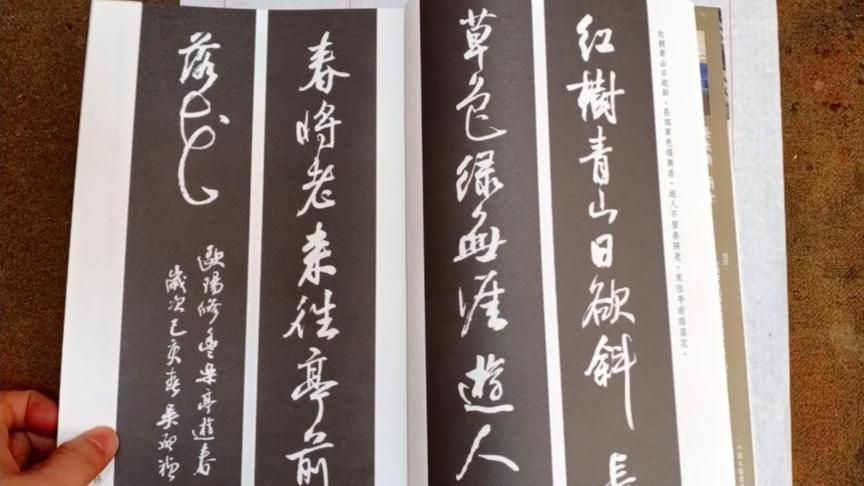 红樹青山日欲斜。長郊草色绿無涯。遊人不管春將老。來往亭前踏落花。
红樹青山日欲斜長
草色绿無涯遊人
春將老来往亭前
落花
歐陽修豐樂亭遊春
歲次己亥春吳